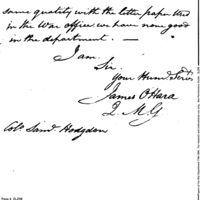 same quality with the letter paper used
in the War office we have none good
in the department. —
I am
Sir
your Hum.
James OHara
Q M G
Col. Sam.l Hodgdon